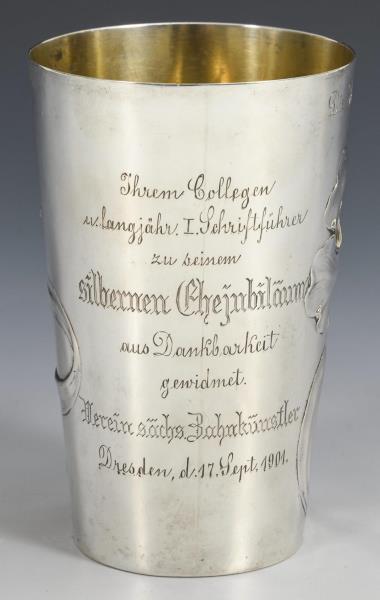 Ihrem Collegen
u. langjähr. I. Schriftführer
zu seinem
silbernen Ehejubiläum
aus Dankbarkeit
gewidmet.
Verein sächs. Zahnkünstler
Dresden, d. 17. Sept. 1901.